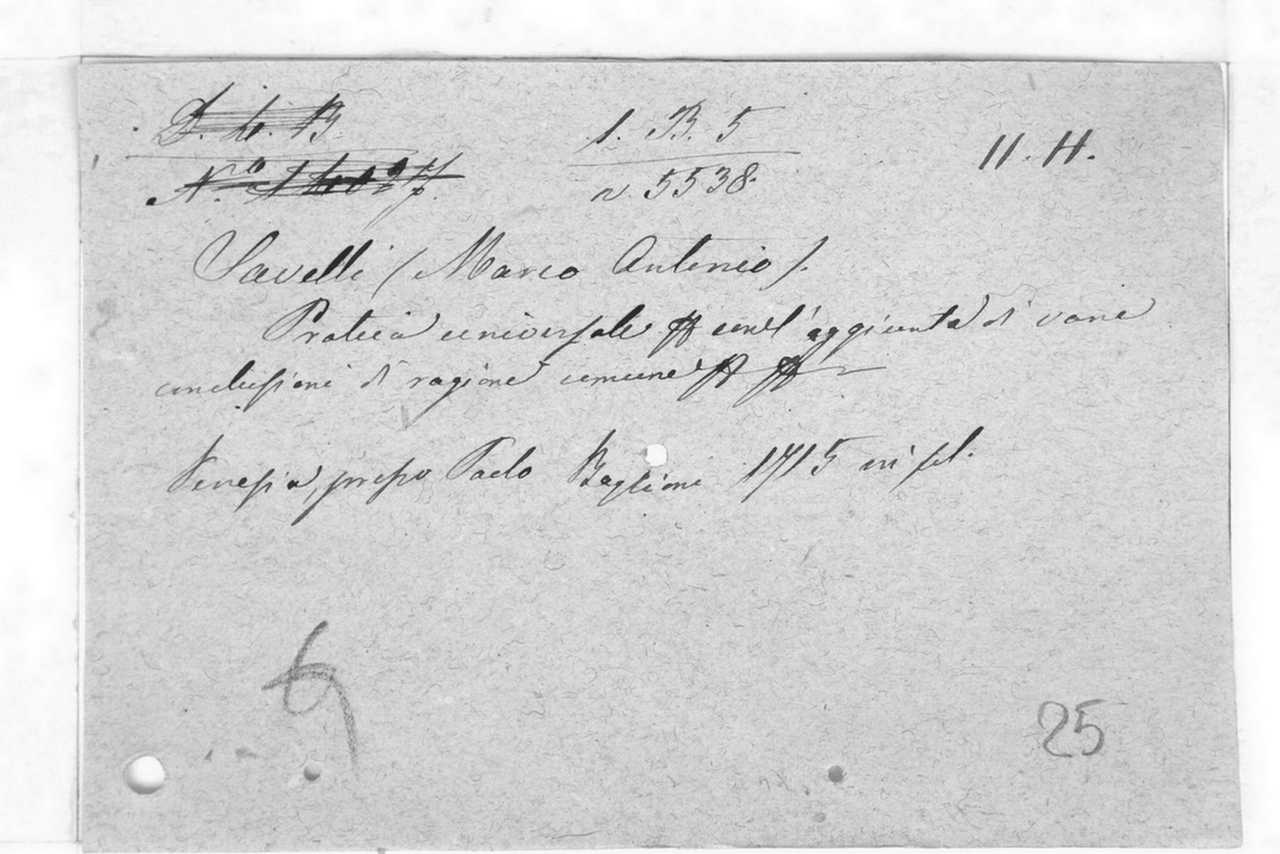 1. B. 5
11. H.
n. 5538
Savelli (Marco Antonio).
Pratica universale con l'aggiunta di varie
conclusioni di ragione comune
Venezia, presso Paolo Baglioni 1715 in fol.
25